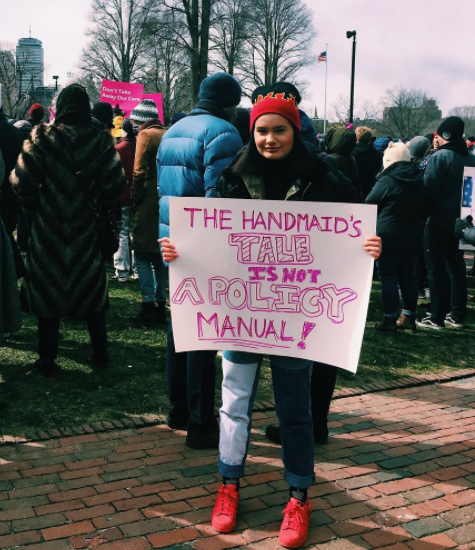 Don't Take
Away Our Care.
THE HANDMAID'S
TALE
IS NOT
A POLICY
MANUAL!